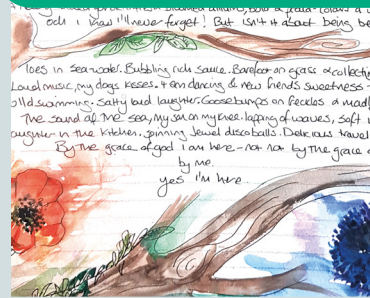 och i know i'll never forget! But isn't it about being be
Toes in sea-water. Bubbling rich sauce. Barefoot on grass & collectin
Loud music, my dogs kisses. 4am dancing & new friends sweetness -
wild swimming. Salty loud laughter. Goosebumps on freckles & madl
The sound of the sea, my son on my knee. lapping of waves, soft
aughter in the kitchen. spinning Jewel discoballs. Delicious travel
By the grace of god I am here - not not by the grace o
by me.
yes i'm here.